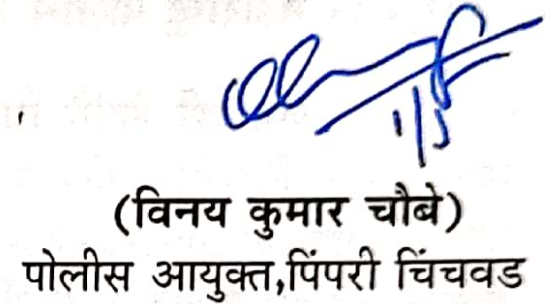 1/5
(विनय कुमार चौबे)
पोलीस आयुक्त,पिंपरी चिंचवड